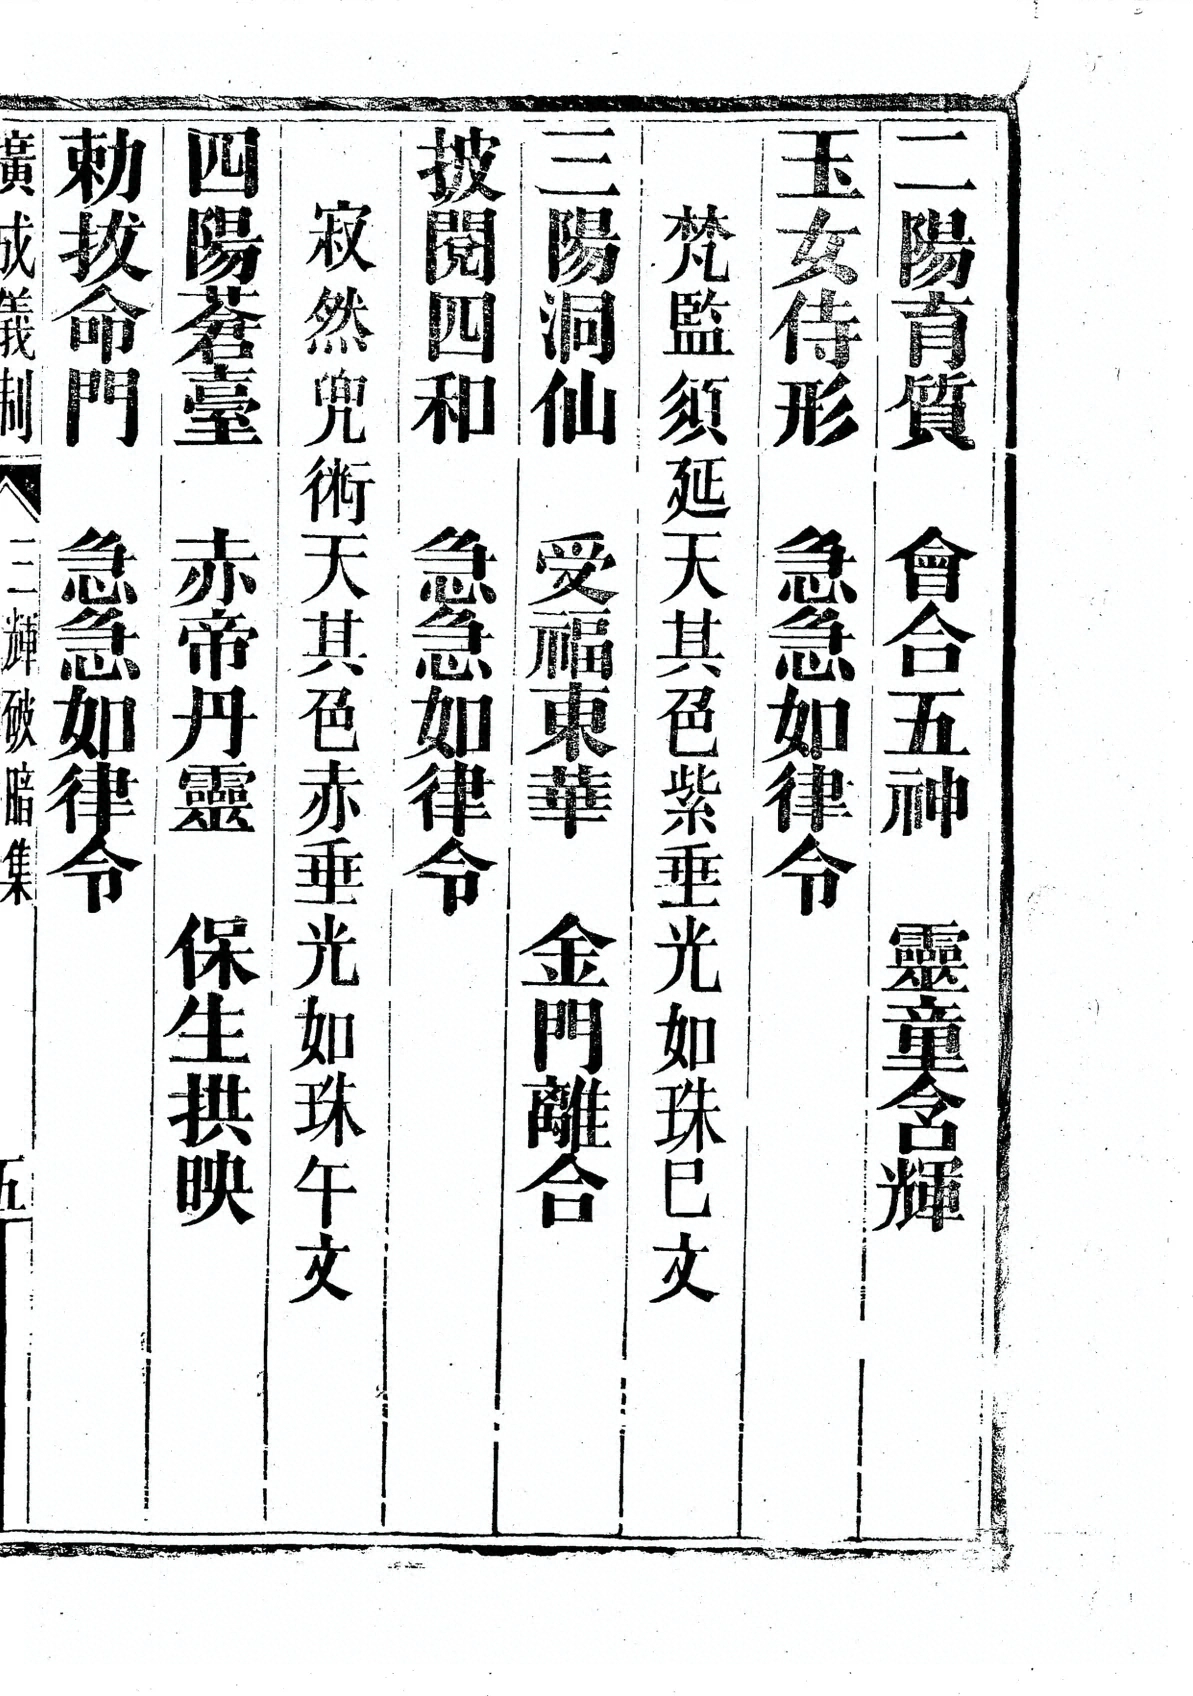 二陽育質　會合五神　靈童含輝
玉女侍形　急急如律令
梵監須延天其色紫垂光如珠巳文
三陽洞仙　受福東華　金門離合
披閱四和　急急如律令
寂然兜術天其色赤垂光如珠午文
四陽蒼臺　赤帝丹靈　保生拱映
勅拔命門　急急如律令
廣成義制　三輝破暗集　五